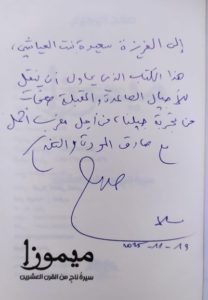 إلى العزيزة سعيدة بنت العياشي،
هذا الكتاب الذي يحاول أن ينقل
للأجيال الصاعدة والمقبلة صفحات
من تجربة جيلنا، من أجل مغرب أفضل
مع صادق المودة والتقدير
صلاح
سلا
19-11-
ميموزا
سيرة ناج من القرن العشرين